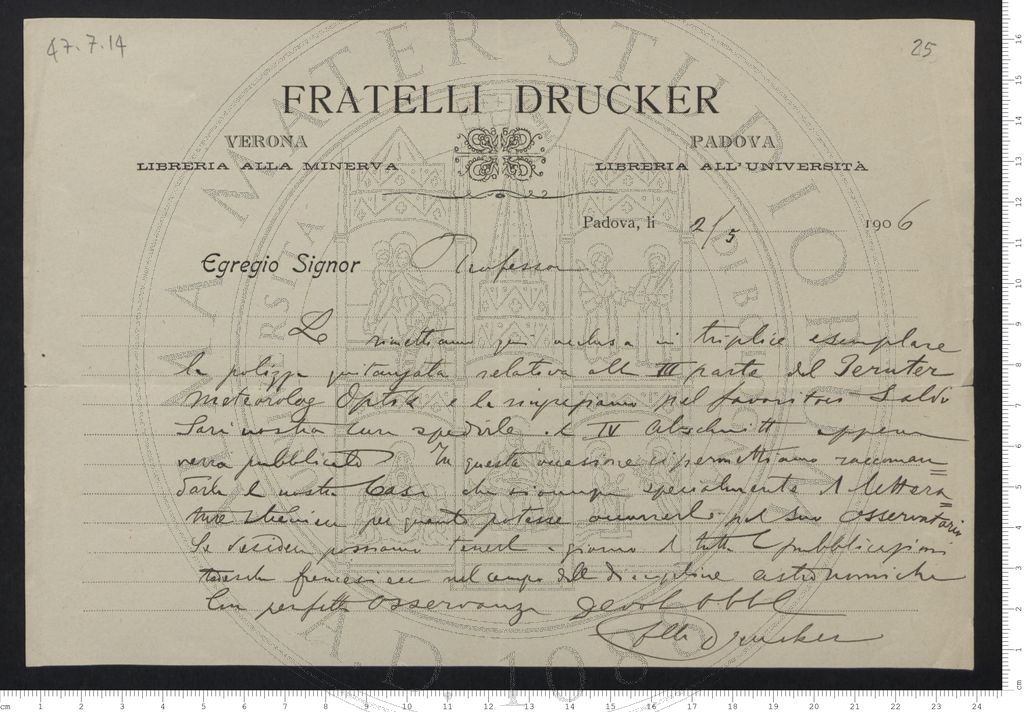 47.7.14
25
FRATELLI DRUCKER
VERONA
LIBRERIA ALLA MINERVA
PADOVA
LIBRERIA ALL'UNIVERSITÀ
Padova, li 2/5 1906
Egregio Signor Professor
Le rimettiamo qui acclusa in triplice esemplare
la polizza quitanzata relativa alla III parte del Pernter
Meteorolog Optik e la ringraziamo pel favoritoci Saldo
Sarà nostra cura spedirle il IV Abschnitt appena
verrà pubblicato In questa occasione ci permettiamo raccoman=
darle la nostra Casa che si occupa specialmente di lettera=
tura straniera per quanto potesse occorrerle pel Suo Osservatorio
Se desidera possiamo tenerla a giorno di tutte le pubblicazioni
tedesche francesi ecc nel campo delle discipline astronomiche
Con perfetta osservanza devot obbl
Flli Drucker
ALMA MATER STUDIORUM
A.D. 1088